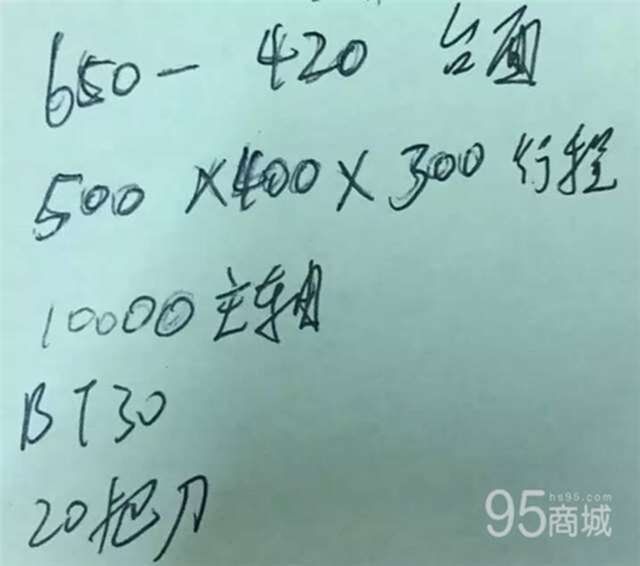 650一420 台面
500×400×300行程
10000主轴
BT30
20把刀
95商城
hs95.com